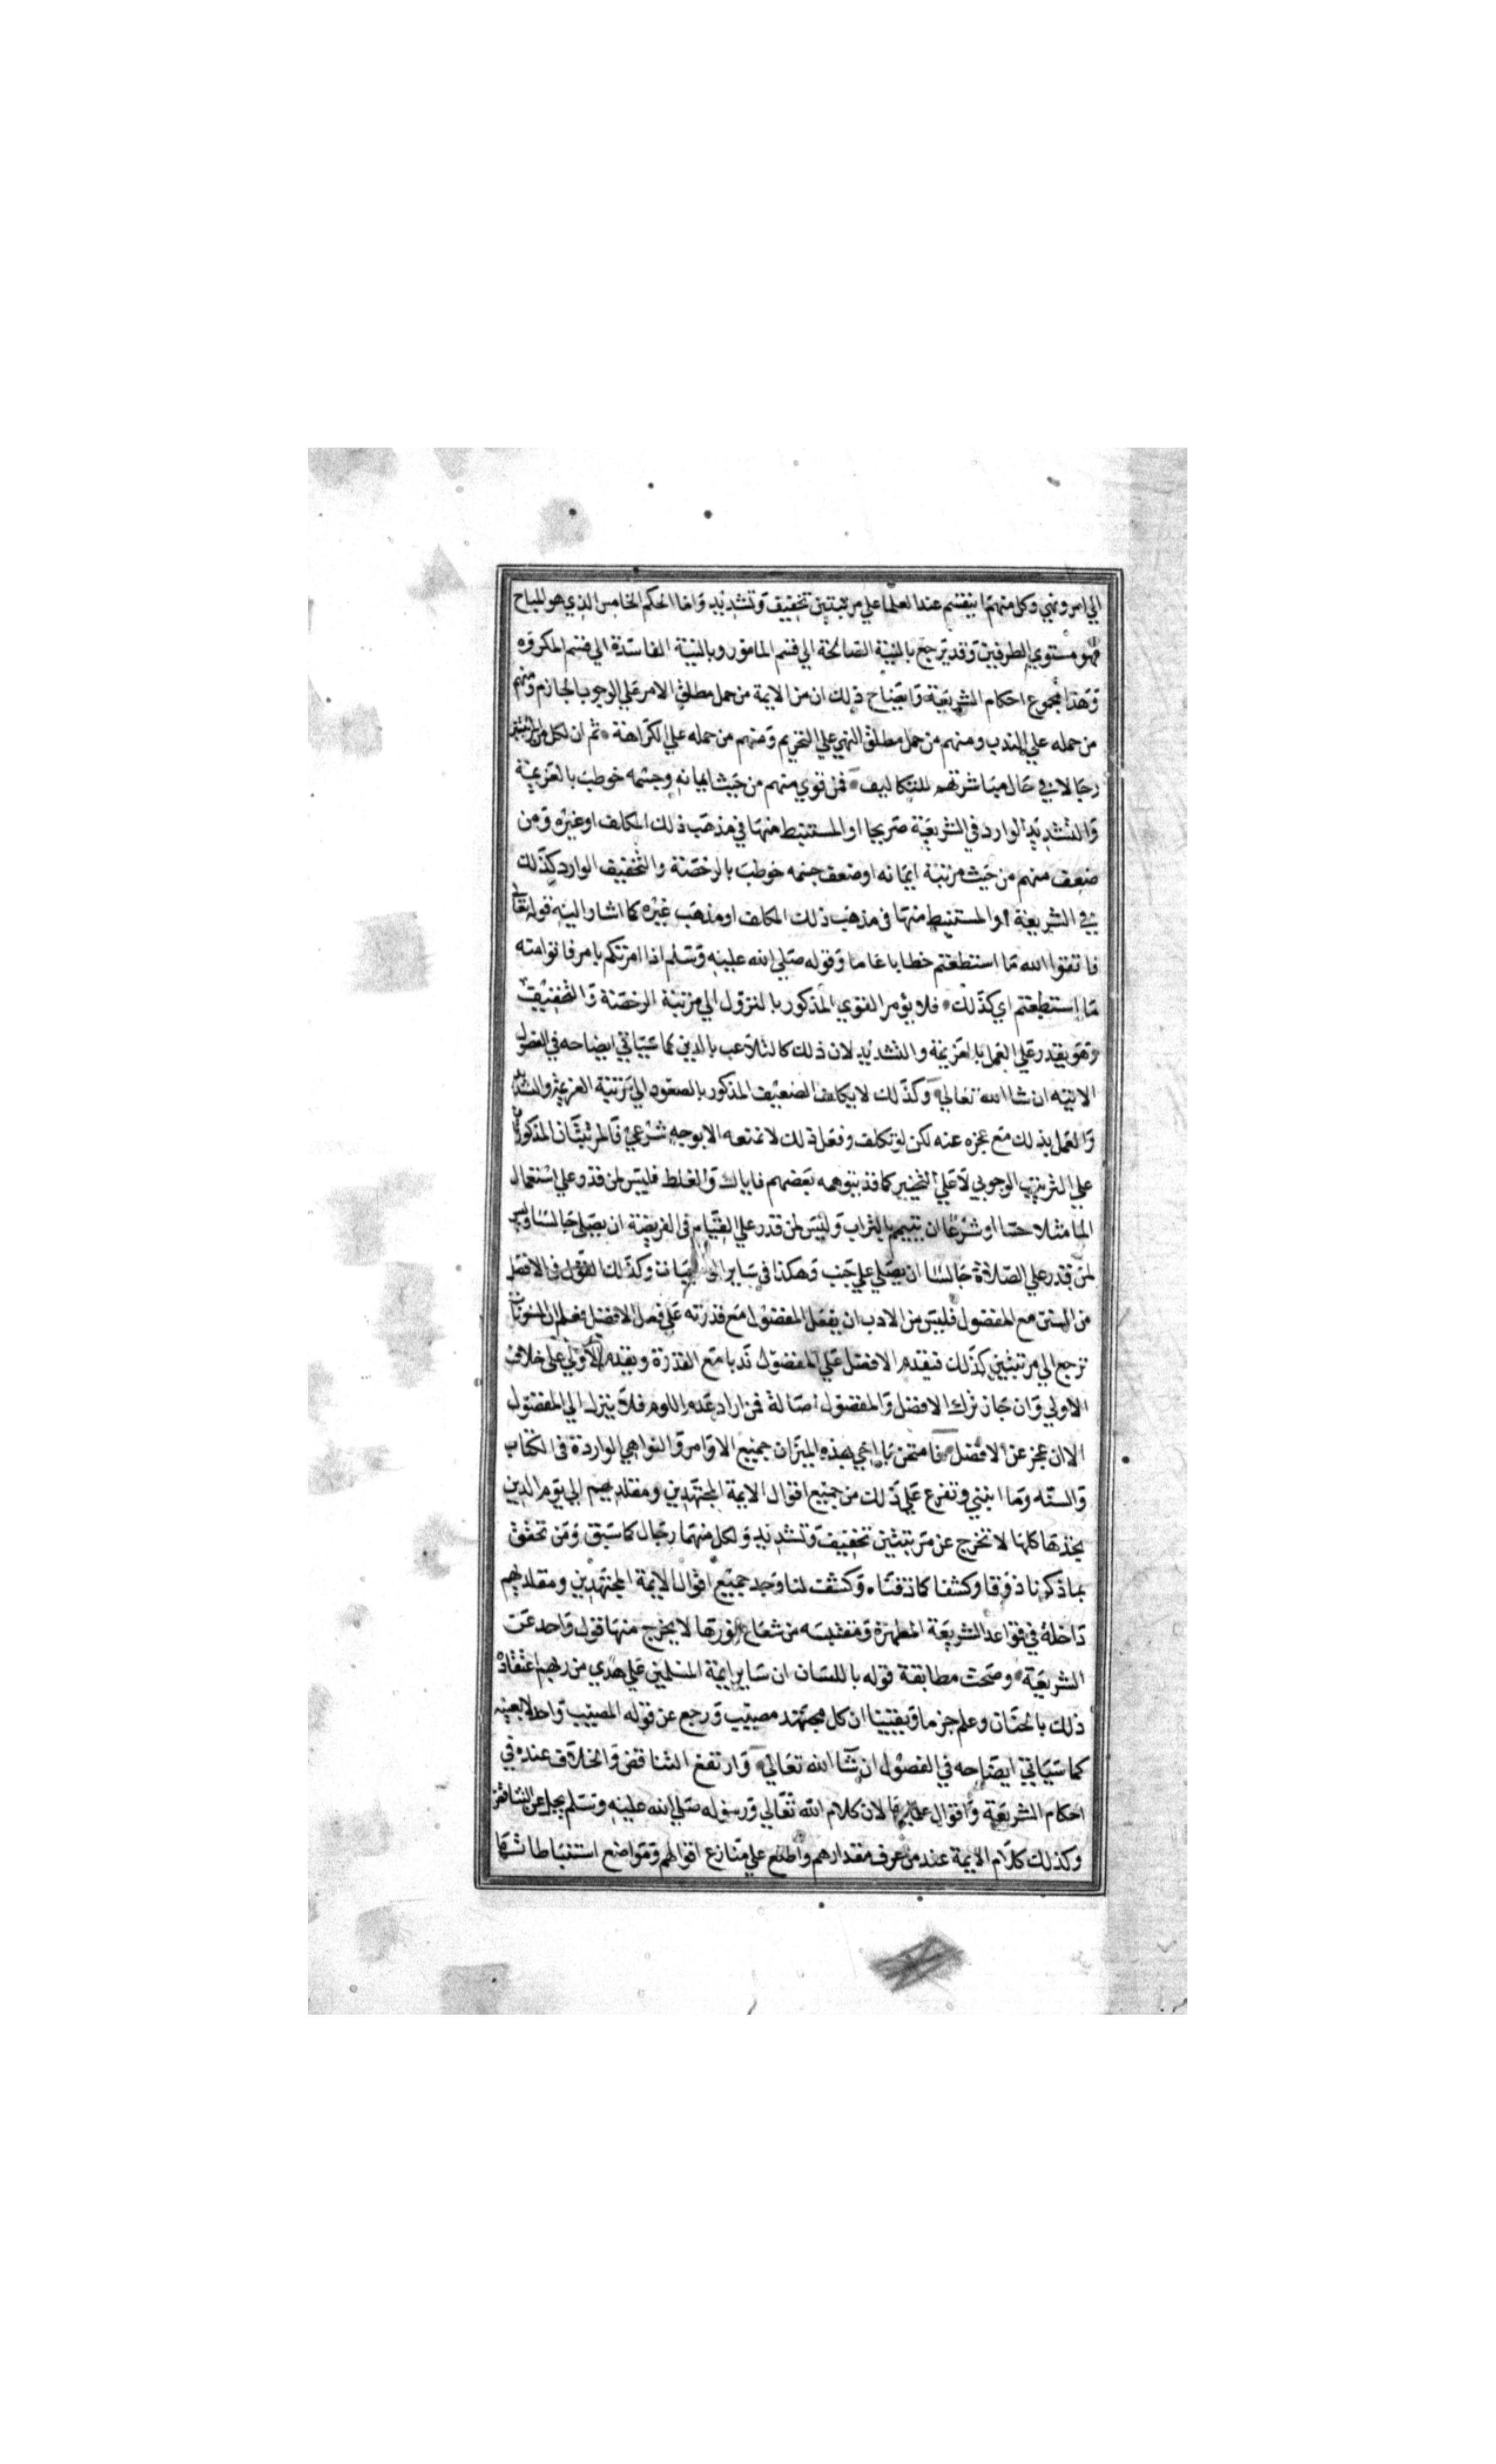 الي امر ونهي وكل منهما ينقسم عند العلما علي مرتبتين تخفيف وتشديد واما الحكم الخامس الذي هو المباح
فهو مستوي الطرفين وقد يرجع بالنية الصالحة الي قسم المامور وبالنية الفاسدة الي قسم المكروه
وهذا مجموع احكام الشريعة وايضاح ذلك ان من الايمة من حمل مطلق الامر علي الوجوب الجازم ومنهم
من حمله علي الندب ومنهم من حمل مطلق النهي علي التحريم ومنهم من حمله علي الكراهة ثم ان لكل من المرتبتين
رجالا في حال مباشرتهم للتكاليف فمن قوي منهم من حيث ايمانه وجسمه خوطب بالعزيمة
والتشديد الوارد في الشريعة صريحا او المستنبط منها في مذهب ذلك المكلف او غيره ومن
ضعف منهم من حيث مرتبة ايمانه او ضعف جسمه خوطب بالرخصة والتخفيف الوارد كذلك
في الشريعة او المستنبط منها في مذهب ذلك المكلف او مذهب غيره كما اشار اليه قوله تعالي
فاتقوا الله ما استطعتم خطابا عاما وقوله صلي الله عليه وسلم اذا امرتكم بامر فاتوا منه
ما استطعتم اي كذلك فلا يؤمر القوي المذكور بالنزول الي مرتبة الرخصة والتخفيف
وهو يقدر علي العمل بالعزيمة والتشديد لان ذلك كالتلاعب بالدين كما سياتي ايضاحه في الفصول
الاتيه ان شا الله تعالي وكذلك لا يكلف الضعيف المذكور بالصعود الي مرتبة العزيمة والتشديد
والعمل بذلك مع عجزه عنه لكن لو تكلف وفعل ذلك لا نمنعه الا بوجه شرعي فالمرتبتان المذكورتان
علي الترتيب الوجوبي لا علي التخيير كما قد يتوهمه بعضهم فاياك والغلط فليس لمن قدر علي استعمال
الما مثلا حسا او شرعا ان يتيمم بالتراب وليس لمن قدر علي القيام في الفريضة ان يصلي جالسا وليس
لمن قدر علي الصلاة جالسا ان يصلي علي جنب وهكذا في ساير الواجبات وكذلك القول في الافضل
من السنن مع المفضول فليس من الادب ان يفعل المفضول مع قدرته علي فعل الافضل فعلم ان المسنونات
ترجع الي مرتبتين كذلك فيقدم الافضل علي المفضول ندبا مع القدرة ويقدم الاولي علي خلاف
الاولي وان جاز ترك الافضل والمفضول اصالة فمن اراد عدم اللوم فلا ينزل الي المفضول
الا ان عجز عن الافضل فامتحن يا اخي بهذه الميزان جميع الاوامر والنواهي الواردة في الكتاب
والسنه وما انبني وتفرع علي ذلك من جميع اقوال الايمة المجتهدين ومقلديهم الي يوم الدين
تجدها كلها لا تخرج عن مرتبتين تخفيف وتشديد ولكل منهما رجال كما سبق ومن تحقق
بما ذكرنا ذوقا وكشفا كما ذقناه وكشف لنا وجد جميع اقوال الايمة المجتهدين ومقلديهم
داخلة في قواعد الشريعة المطهرة ومقتبسه من شعاع نورها لا يخرج منها قول واحد عن
الشريعة وصحت مطابقة قوله باللسان ان ساير ايمة المسلمين علي هدي من ربهم اعتقاده
ذلك بالجنان وعلم جزما ويقينا ان كل مجتهد مصيب ورجع عن قوله المصيب واحد لا بعينه
كما سياتي ايضاحه في الفصول ان شا الله تعالي وارتفع التناقض والخلاف عنده في
احكام الشريعة واقوال علمايها لان كلام الله تعالي ورسوله صلي الله عليه وسلم يجل عن التناقض
وكذلك كلام الايمة عند من عرف مقدارهم واطلع علي منازع اقوالهم ومواضع استنباطاتها